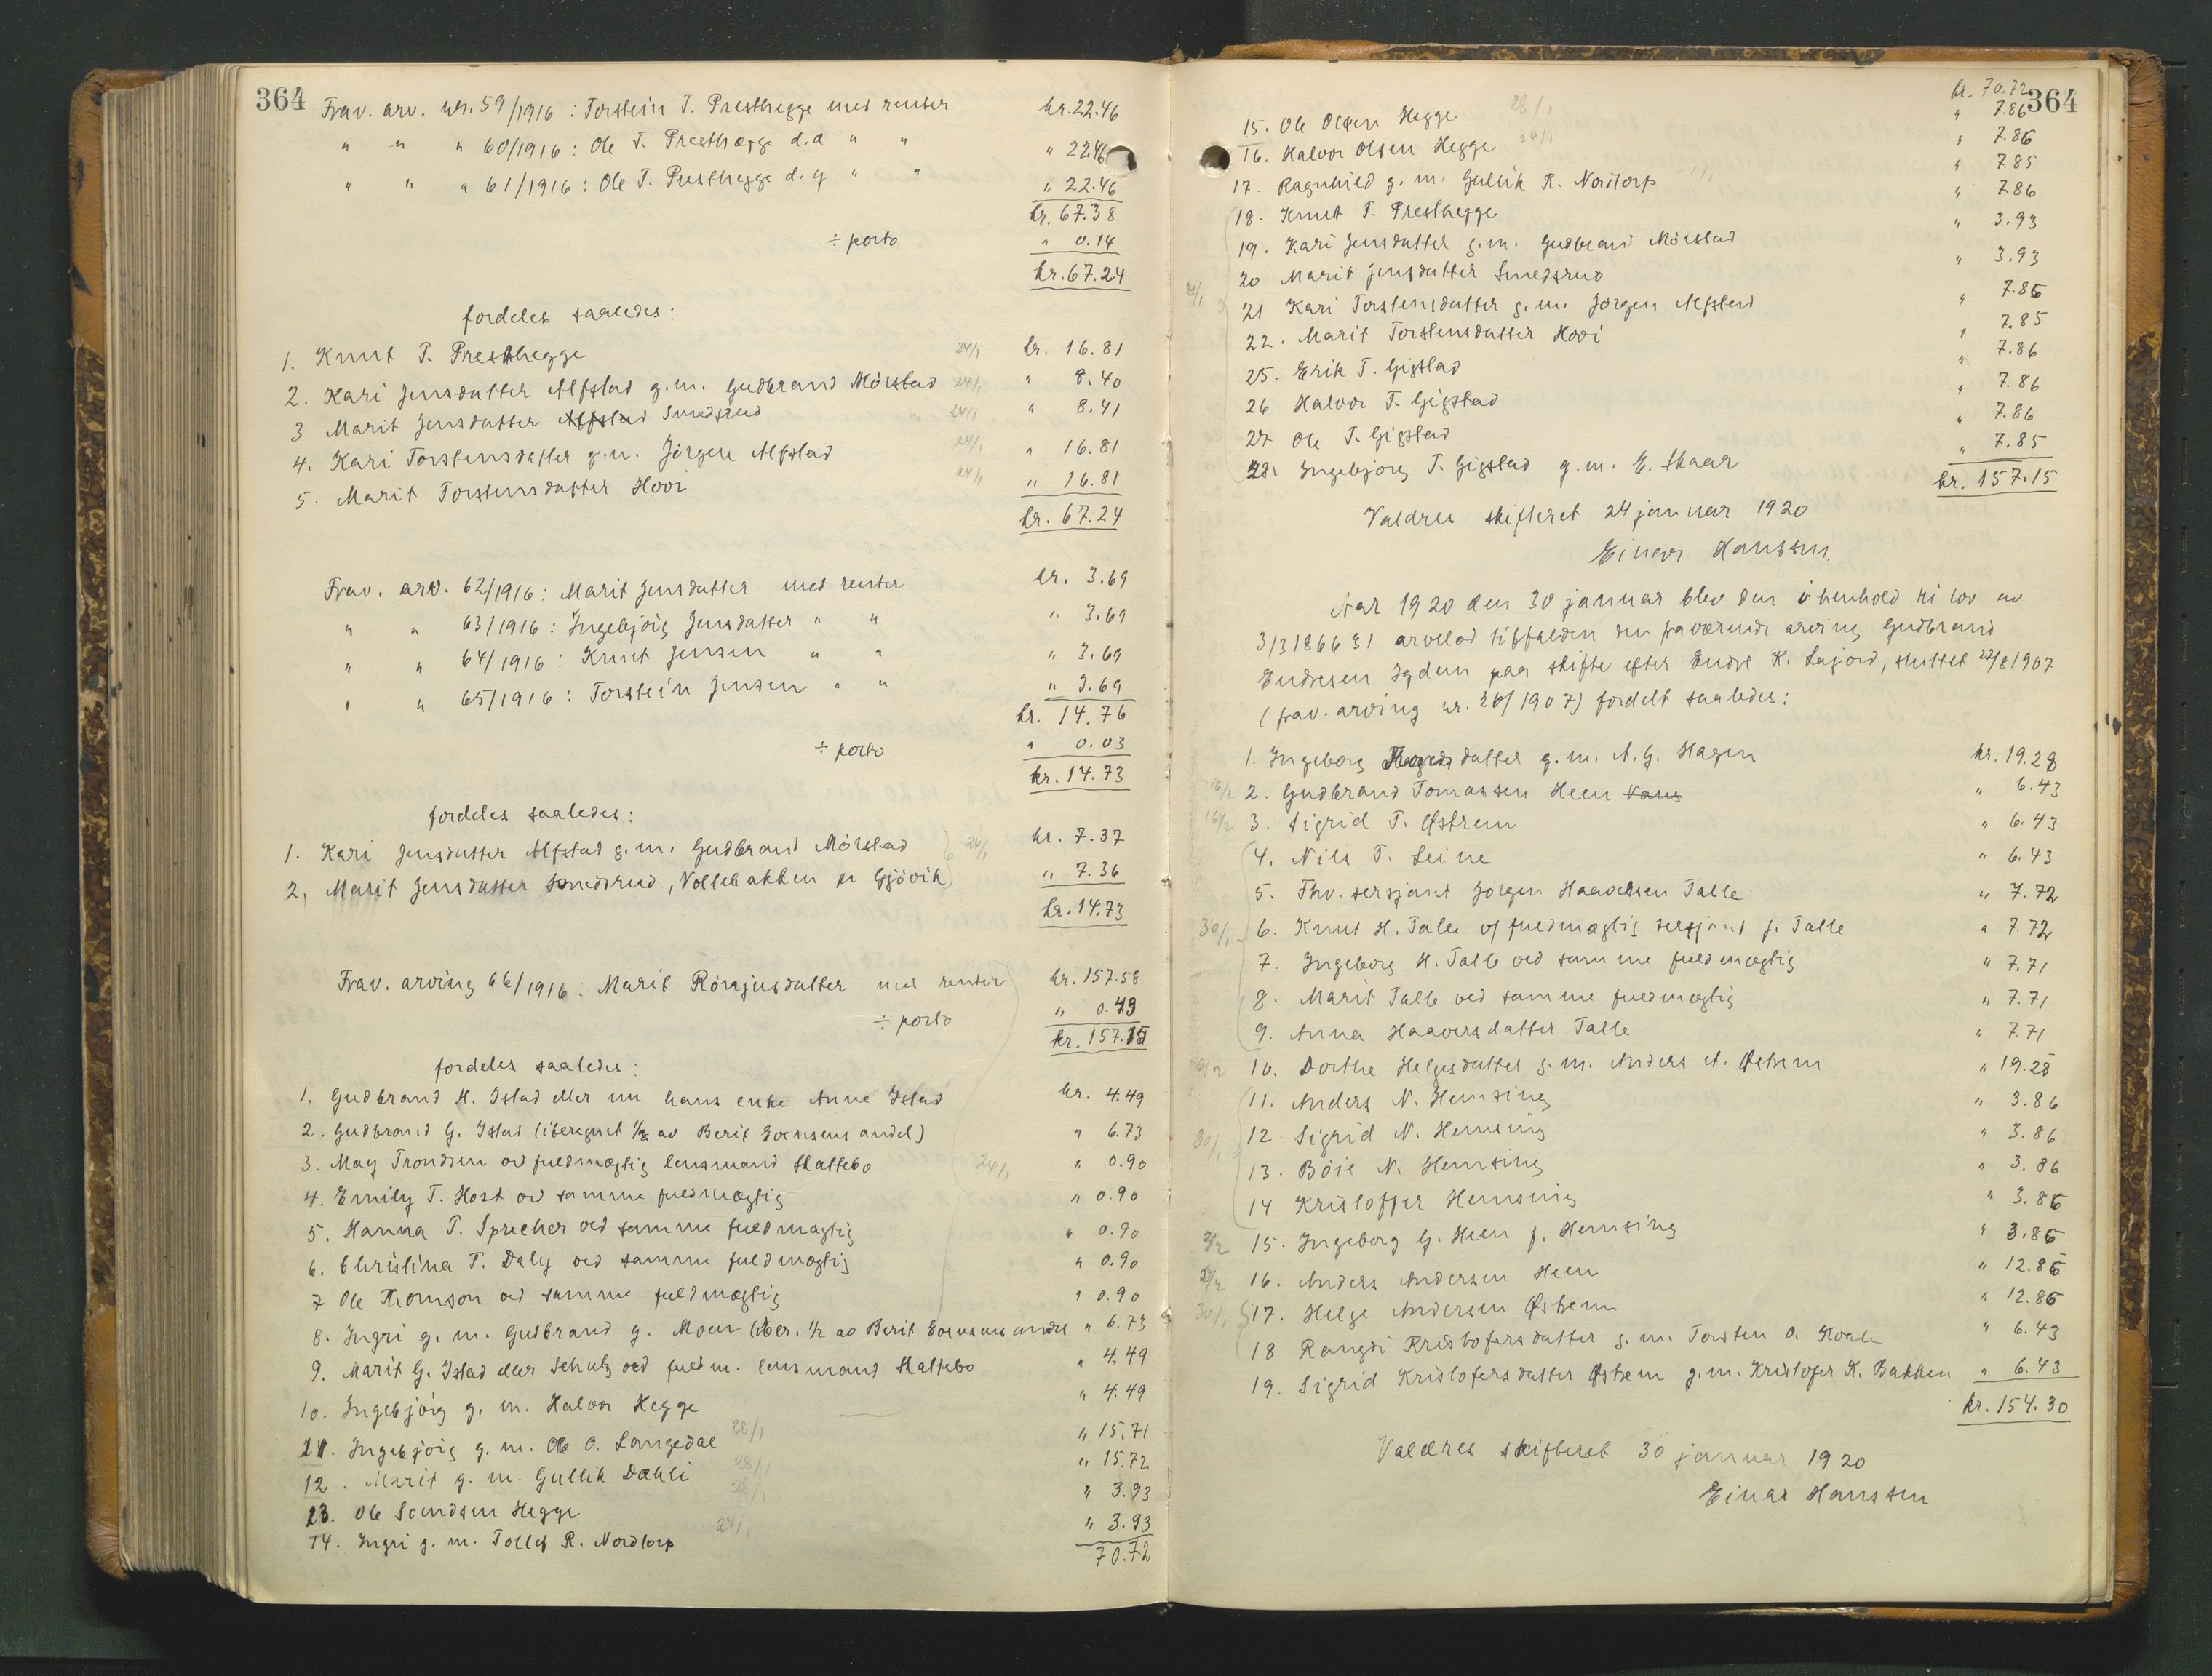 364
Frav. arv. nr. 59/1916: Torstein T. Presthegge med renter kr. 22.46
" " " 60/1916: Ole T. Presthegge d.æ " " " 22.46
" " " 61/1916: Ole T. Presthegge d. y " " " 22.46
kr. 67.38
÷ porto " 0.14
kr. 67.24
fordeles saaledes:
1. Knut T. Presthegge 24/1 kr. 16.81
2. Kari Jensdatter Alfstad g.m. Gudbrand Mörstad 24/1 " 8.40
3 Marit Jensdatter Alfstad Smedsrud 24/1 " 8.41
4. Kari Torstensdatter g.m. Jörgen Alfstad 24/1 " 16.81
5. Marit Torstensdatter Hovi 24/1 " 16.81
kr. 67.24
Frav. arv. 62/1916: Marit Jensdatter med renter kr. 3.69
" " 63/1916: Ingebjörg Jensdatter " " " 3.69
" " 64/1916: Knut Jensen " " " 3.69
" " 65/1916: Torstein Jensen " " " 3.69
kr. 14.76
÷ porto " 0.03
kr. 14.73
fordeles saaledes:
1. Kari Jensdatter Alfstad g.m. Gudbrand Mörstad 24/1 kr. 7.37
2. Marit Jensdatter Smedsrud, Vollebakken pr Gjövik " 7.36
kr. 14.73
Frav. arving 66/1916: Marit Rönjusdatter med renter kr. 157.58
÷ porto " 0.43
kr. 157.15
fordeles saaledes:
1. Gudbrand H. Istad eller nu hans enke Anne Istad kr. 4.49
2. Gudbrand G. Istad (iberegnet 1/2 av Berit Evensens andel) " 6.73
3. May Trondsen ved fuldmægtig lensmand Skattebo 24/1 " 0.90
4. Emily T. Host ved samme fuldmægtig " 0.90
5. Hanna T. Sprecher ved samme fuldmægtig " 0.90
6. Christina T. Daly ved samme fuldmægtig " 0.90
7 Ole Thomson ved samme fuldmægtig " 0.90
8. Ingri g. m. Gudbrand G. Moen (iber. 1/2 av Berit Evensens andel " 6.73
9. Marit G. Istad eller Schulz ved fuldm. lensmand Skattebo " 4.49
10. Ingebjörg g. m. Halvor Hegge " 4.49
11. Ingebjörg g. m. Ole O. Langedal 28/1 " 15.71
12. Marit g. m. Gullik Dæhli 28/1 " 15.72
13. Ole Svendsen Hegge 28/1 " 3.93
14. Ingri g. m. Tollef R. Nordtorp 24/1 " 3.93
70.72
364
kr. 70.72
15. Ole Olsen Hegge 28/1 " 7.86
16. Halvor Olsen Hegge 24/1 " 7.86
17. Ragnhild g. m. Gullik R. Nordtorp " 7.85
18. Knut T. Presthegge " 7.86
19. Kari Jensdatter g.m. Gudbrand Mörstad " 3.93
20 Marit Jensdatter Smedsrud " 3.93
21 Kari Torstensdatter g.m. Jörgen Alfstad " 7.86
22. Marit Torstensdatter Hovi " 7.85
25. Erik T. Gigstad " 7.86
26 Halvor T. Gigstad " 7.86
27 Ole T. Gigstad " 7.86
28. Ingebjörg T. Gigstad g.m. E. Skaar " 7.85
kr. 157.15
Valdres skifteret 24 januar 1920
Einar Hanssen
Aar 1920 den 30 januar blev den i henhold til lov av
3/3 1866 § 1 arvelod tilfalden den fraværende arving Gudbrand
Endresen Igdem paa skifte efter Endre K. Lajord, sluttet 22/8 1907
(frav. arving nr. 26/1907) fordelt saaledes:
1. Ingeborg datter g.m. A. G. Hagen kr. 19.28
16/2 2. Gudbrand Tomassen Heen Vang " 6.43
16/2 3. Sigrid T. Østrem " 6.43
4. Nils T. Leine " 6.43
5. Fhv. sersjant Jörgen Haavelsen Talle " 7.72
30/1 6. Knut H. Talle v/ fuldmægtig sersjant J. Talle " 7.72
7. Ingeborg H. Talle ved samme fuldmægtig " 7.71
8. Marit Talle ved samme fuldmægtig " 7.71
9. Anna Haaversdatter Talle " 7.71
10. Dorthe Helgesdatter g.m. Anders A. Østrem " 19.28
11. Anders N. Hemsing " 3.86
30/1 12. Sigrid N. Hemsing " 3.86
13. Böie N. Hemsing " 3.86
14 Kristoffer Hemsing " 3.86
2/2 15. Ingeborg G. Heen f. Hemsing " 3.86
16. Anders Andersen Heen " 12.86
30/1 17. Helge Andersen Østrem " 12.86
18 Rangdi Kristofersdatter g.m. Torsten O. Kvale " 6.43
19. Sigrid Kristofersdatter Østrem g.m. Kristofer K. Bakken " 6.43
kr. 154.30
Valdres skifteret 30 januar 1920
Einar Hanssen